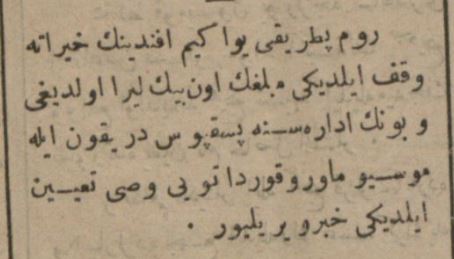 روم پطریقی یوا کیم افندینك خیراته
وقف ایلدیکی مبلغك اون بیك لیرا اولدیغی
و بونك اداره سنه پسقپوس دریقون ایله
موسیو ماوروقورداتویی وصی تعیین
ایلدیکی خبر ویریلیور ٠